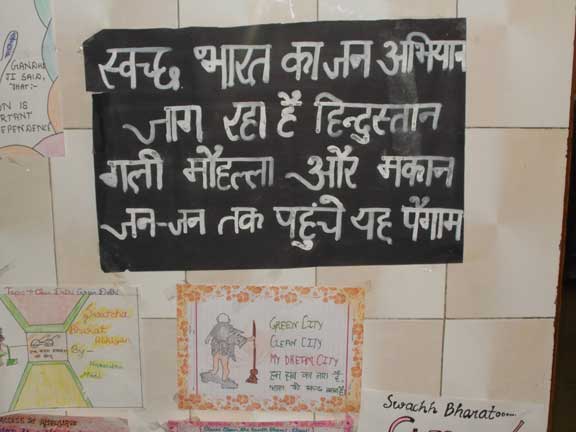 GANDHI
JI SAID,
THAT:-
ON IS
RTANT
EPENDENCE
स्वच्छ भारत का जन अभियान
जाग रहा है हिन्दुस्तान
गली मौहल्ला और मकान
जन-जन तक पहुंचे यह पैगाम
Topic → Clean Delhi Green Delhi
Swatcha
Bharat
Abhiyan
By -
GREEN CITY
CLEAN CITY
MY DREAM CITY
हम सब का नारा है,
Swachh Bharat......